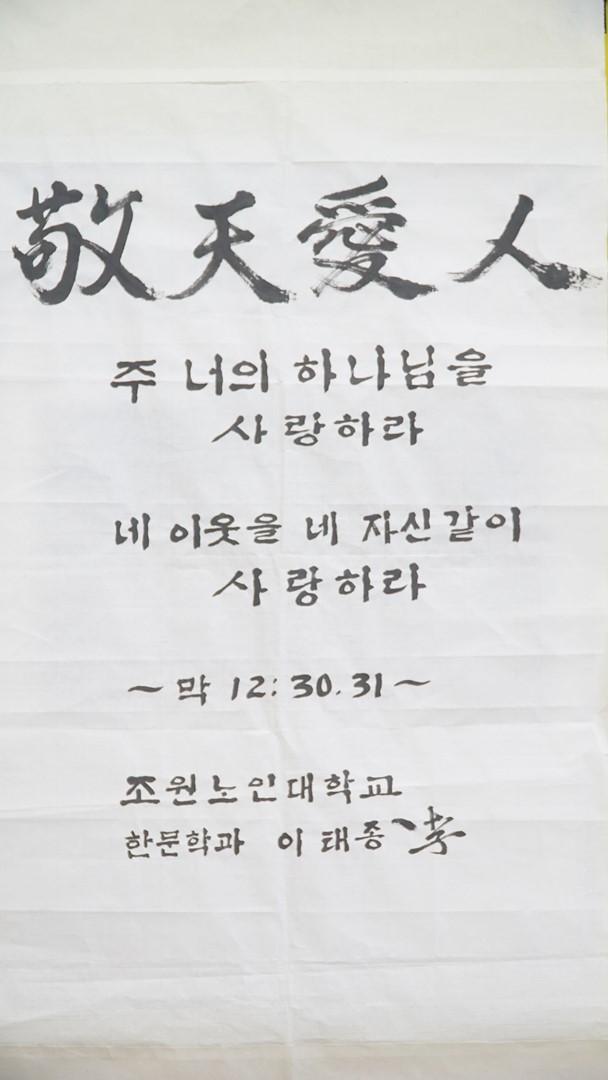 敬天愛人
주 너의 하나님을
사랑하라
네 이웃을 네 자신같이
사랑하라
~막 12:30.31~
조원노인대학교
한문학과 이태종